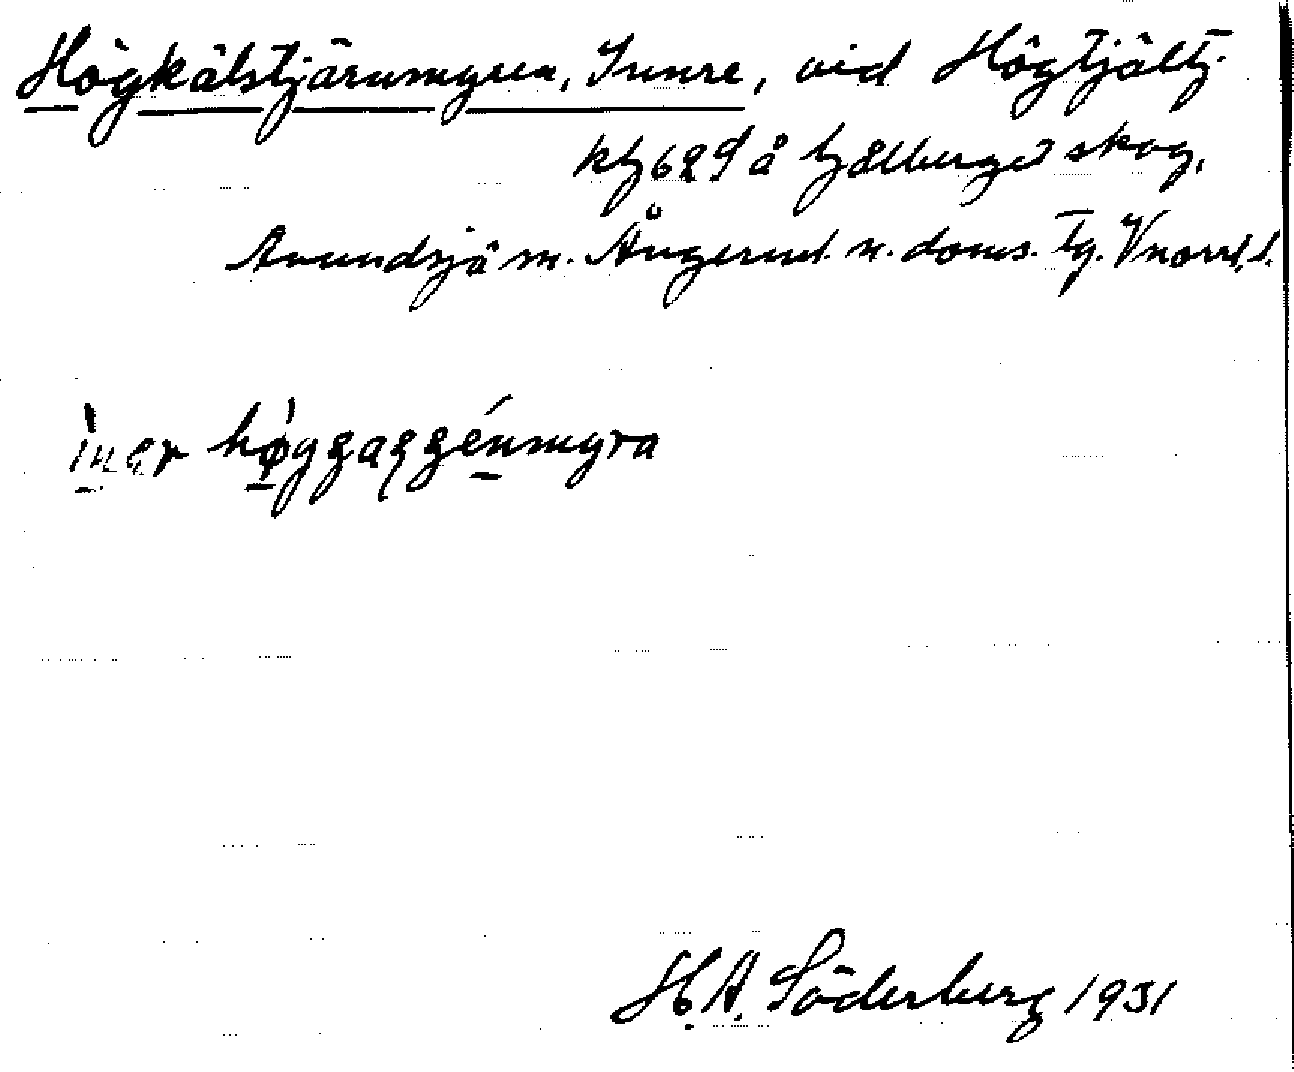 Högkälstjärnmyren, Innre, vid Högtjältj.
kbl 629 å Kjålberget skog,
Anundsjö sn. Ångerml. n. doms. Tg. Vnorrl. l.
ìnər høggaççénmyra
H. A. Söderberg 1931